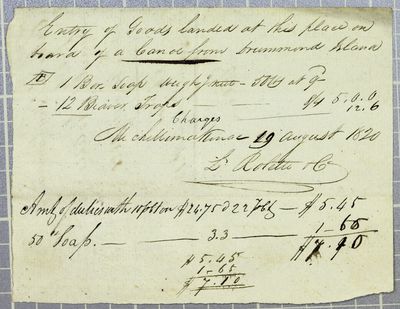 Entry of Goods landed at this place on
board of a Canoe from Drummond Island
1 Box Soap weigh'g nett - 50 lb at
12 Beaver Traps $4 5.0.0
12.6
Charges
Michilimackinac 19 august 1820
L. Rolette & Co
Amt of duties with on $24.75 d 22 - $5.45
50 lb Soap. - 3.3 - 1-65
$7.10
$5.45
1-65
$7.10